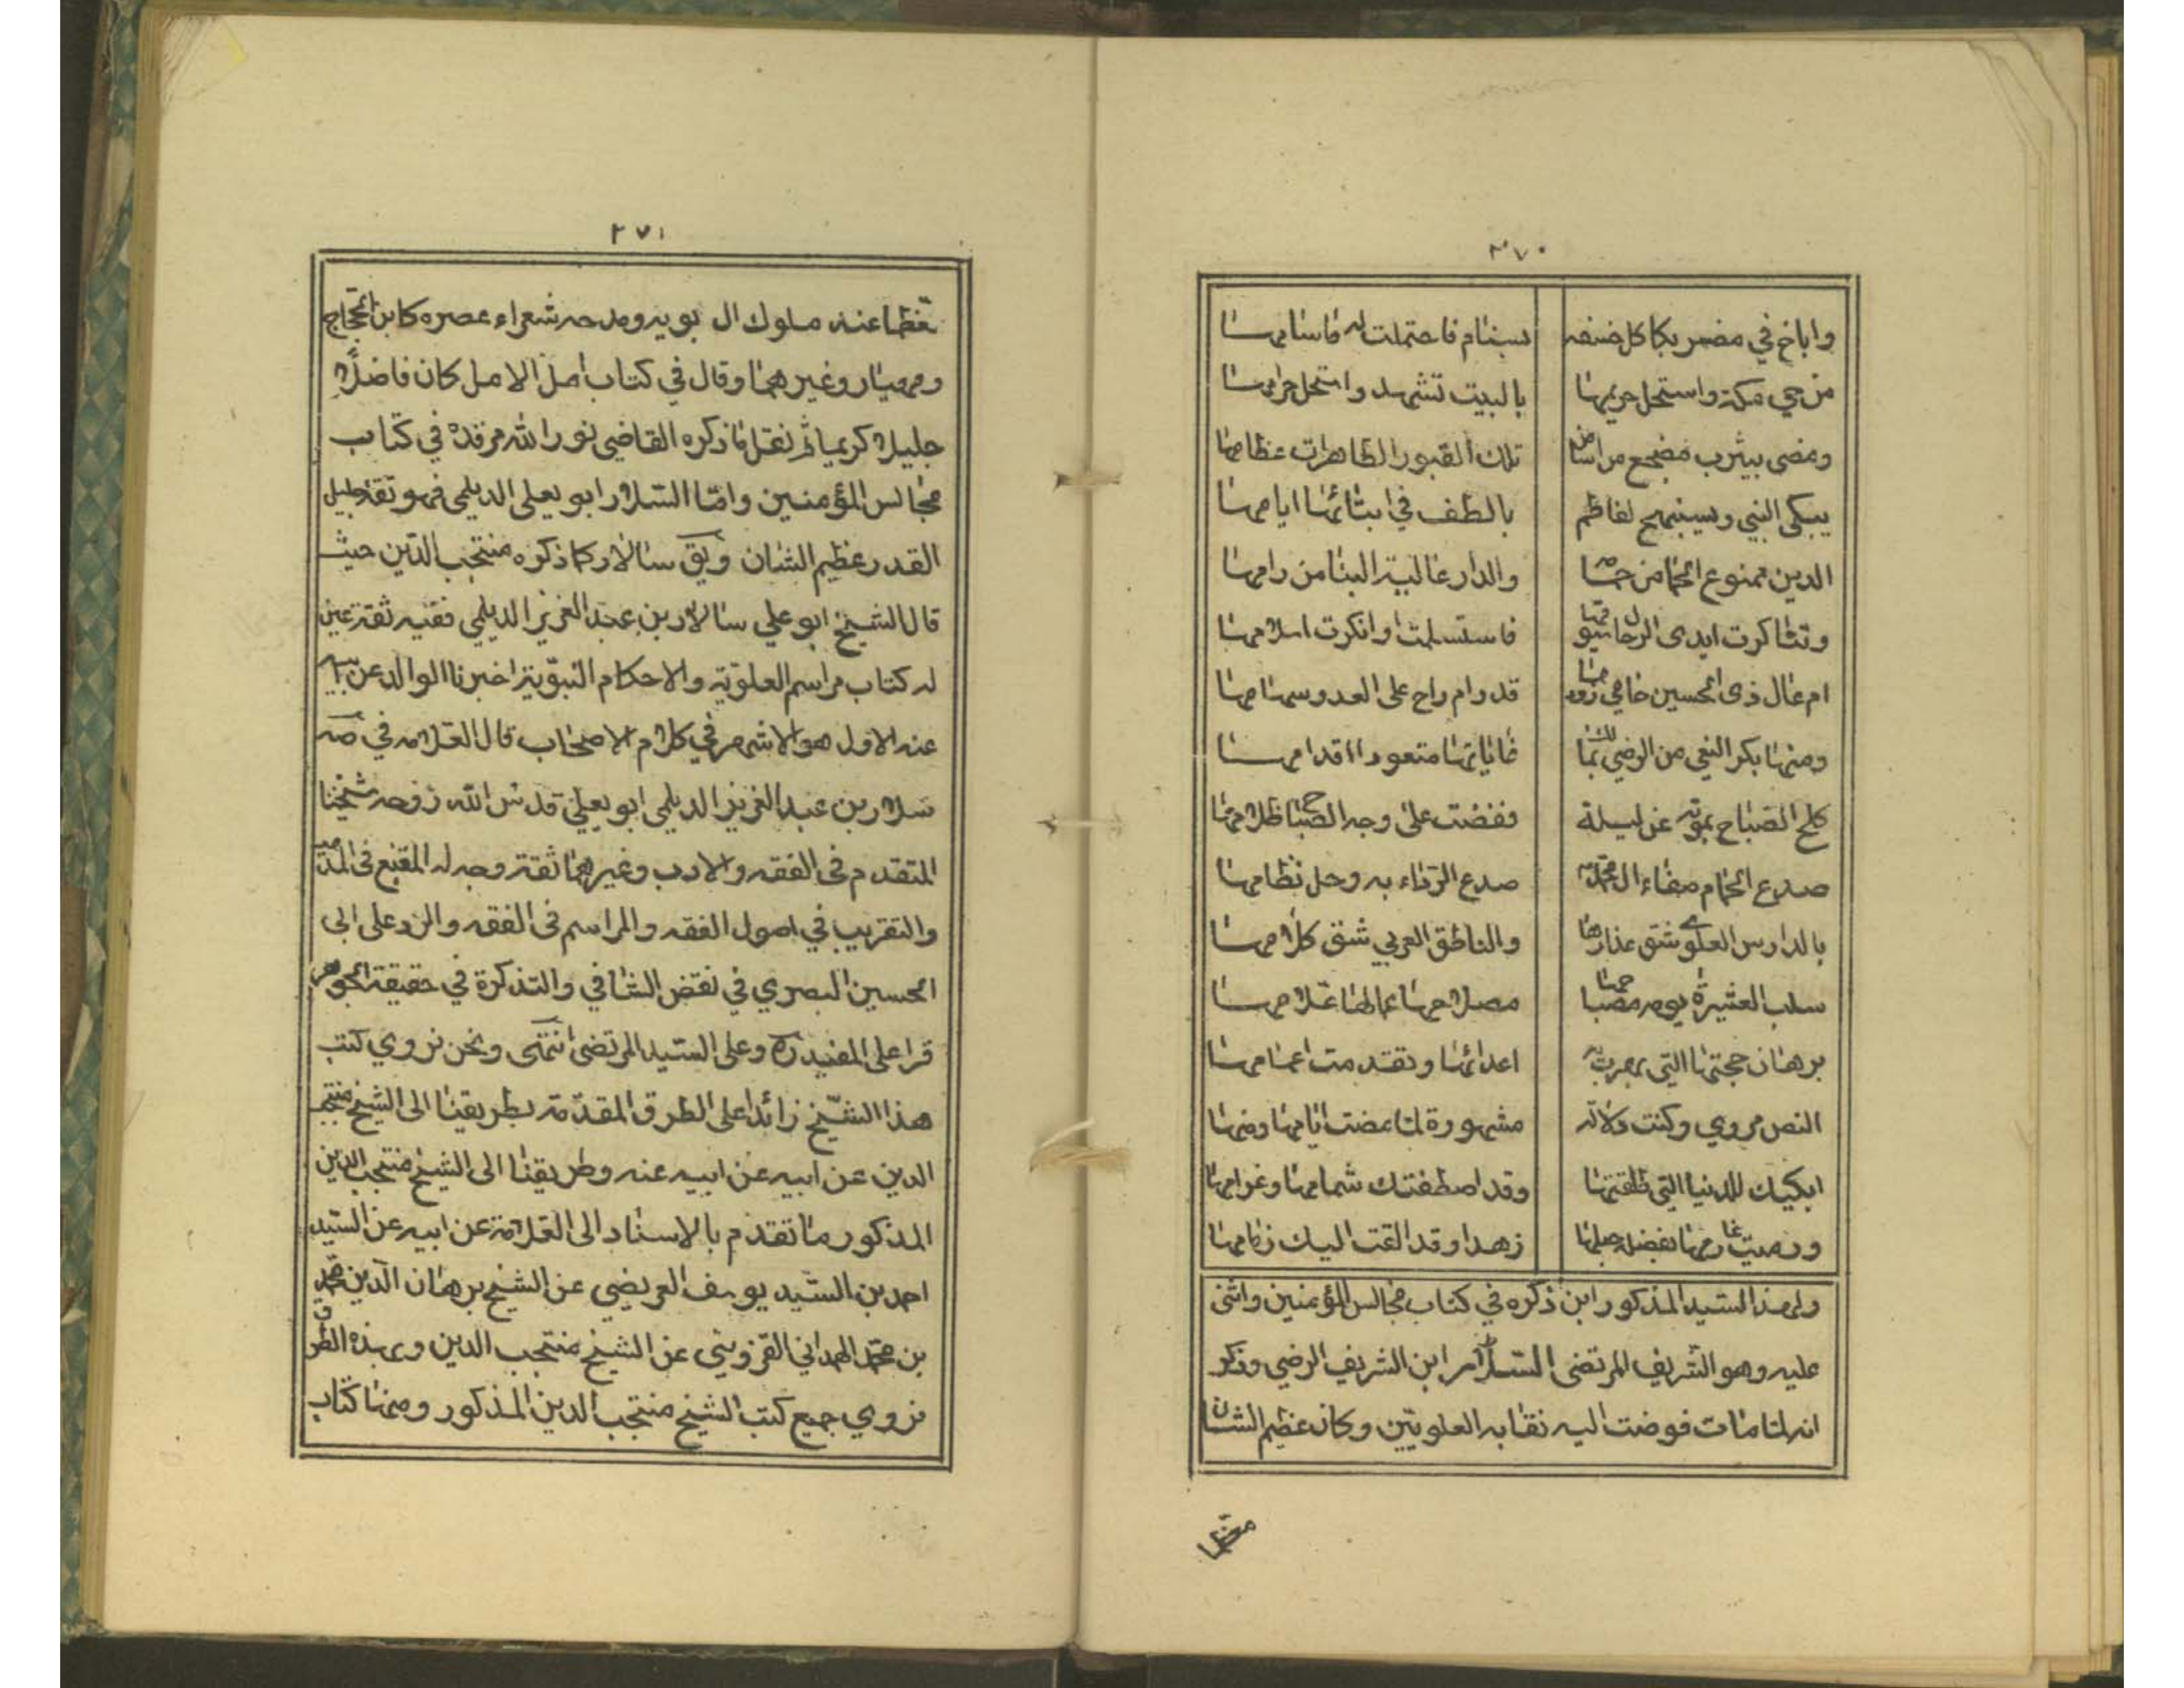 ٢٧٠
واباخ في مضر بكا كل خنفه بسنام فاحتملت له فاسنامها
من حي مكة واستحل حريمها بالبيت تشهد واستحل حرامها
ومضى بيثرب مضجع من اسامن تلك القبور الطاهرات عظامها
يبكى النبي وسينهيج لفاطم بالطف في ابنائها ايامها
الدين ممنوع الحما من حمه والدار غالية البنا من رامها
وتناكرت ايدى الرجال فاستسلمت او انكرت اسلامها
ام غال ذى الحسين حامي ذودها قدرام راح على العدو سهامها
ومنها بكر النعي من الرضي بمالك غاياتها متعودا اقدامها
كلح الصباح بموته عن ليلة نفضت على وجه الصباح ظلامها
صدع الحمام صفاء ال محمد صدع الرداء به وحل نظامها
بالدارس العلوي شق عذارها والناطق العربي شق كلامها
سلب العشيرة يومه مصباحها مصلاحها عمالها علامها
برهان حجتها التي بهرت به اعدائها وتقدمت اعمامها
النص مروي وكنت دلالة مشهورة لما مضت ايامها ومنها
ابكيك للدنيا التي طلقتها وقد اصطفتك شمامها وغرامها
ورميت غاربها بفضل حبلها زهدا وقد القت اليك زمامها
ولهذا السيد المذكور ابن ذكره في كتاب مجالس المؤمنين واثنى
عليه وهو الشريف المرتضى ابن الشريف الرضي وذكر
انه لما مات فوضت اليه نقابه العلويين وكان عظيم الشان
معظما
٢٧١
معظما عند ملوك ال بويه ومدحه شعراء عصره كابن الحجاج
ومهيار وغيرهما وقال في كتاب امل الامل كان فاضلا
جليلا كريما ثم نقل ما ذكره القاضي نور الله مرقده في كتاب
مجالس المؤمنين واما السلار ابو يعلى الديلمي فهو ثقة جليل
القدر عظيم الشان ويق سالار كما ذكره منتجب الدين حيث
قال الشيخ ابو علي سالار بن عبد العزيز الديلمي فقيه ثقة عين
له كتاب مراسم العلوية والاحكام النبوية اخبرنا الوالد عن ابيه
عنه الاول هو الاشهر في كلام الاصحاب قال العلامه في صه
سلار بن عبد العزيز الديلمي ابو يعلى قدس الله روحه شيخنا
المتقدم في الفقه والادب وغيرهما ثقة وجه له المقنع في المذهب
والتقريب في اصول الفقه والمراسم في الفقه والرد على ابى
الحسين البصري في نقض الشافي والتذكرة في حقيقة الجوهر
قرا على المفيد ره وعلى السيد المرتضى انتهى ونحن نروي كتب
هذا الشيخ زائدا على الطرق المقدمة بطريقنا الى الشيخ منتجب
الدين عن ابيه عن ابيه عنه وطريقنا الى الشيخ منتجب الدين
المذكور ما تقدم بالاسناد الى العلامة عن ابيه عن السيد
احمد بن السيد يوسف العريضي عن الشيخ برهان الدين محمد
بن محمد الهمداني القزويني عن الشيخ منتجب الدين وبهذه الطرق
نروي جميع كتب الشيخ منتجب الدين المذكور ومنها كتاب